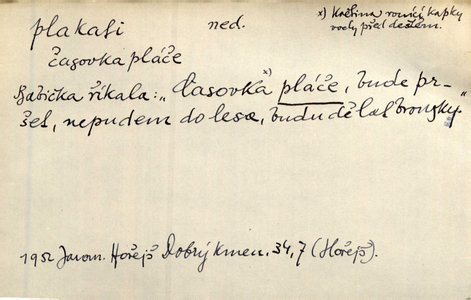 plakati ned. x) Květina ronící kapky
vody před deštěm.
časovka pláče
Babička říkala: „Časovka x) pláče, bude pr-
šet, nepudem do lesa, budu dělat brousky."
1952 Jarom. Hořejš Dobrý kmen, 34, 7 (Hořejš).